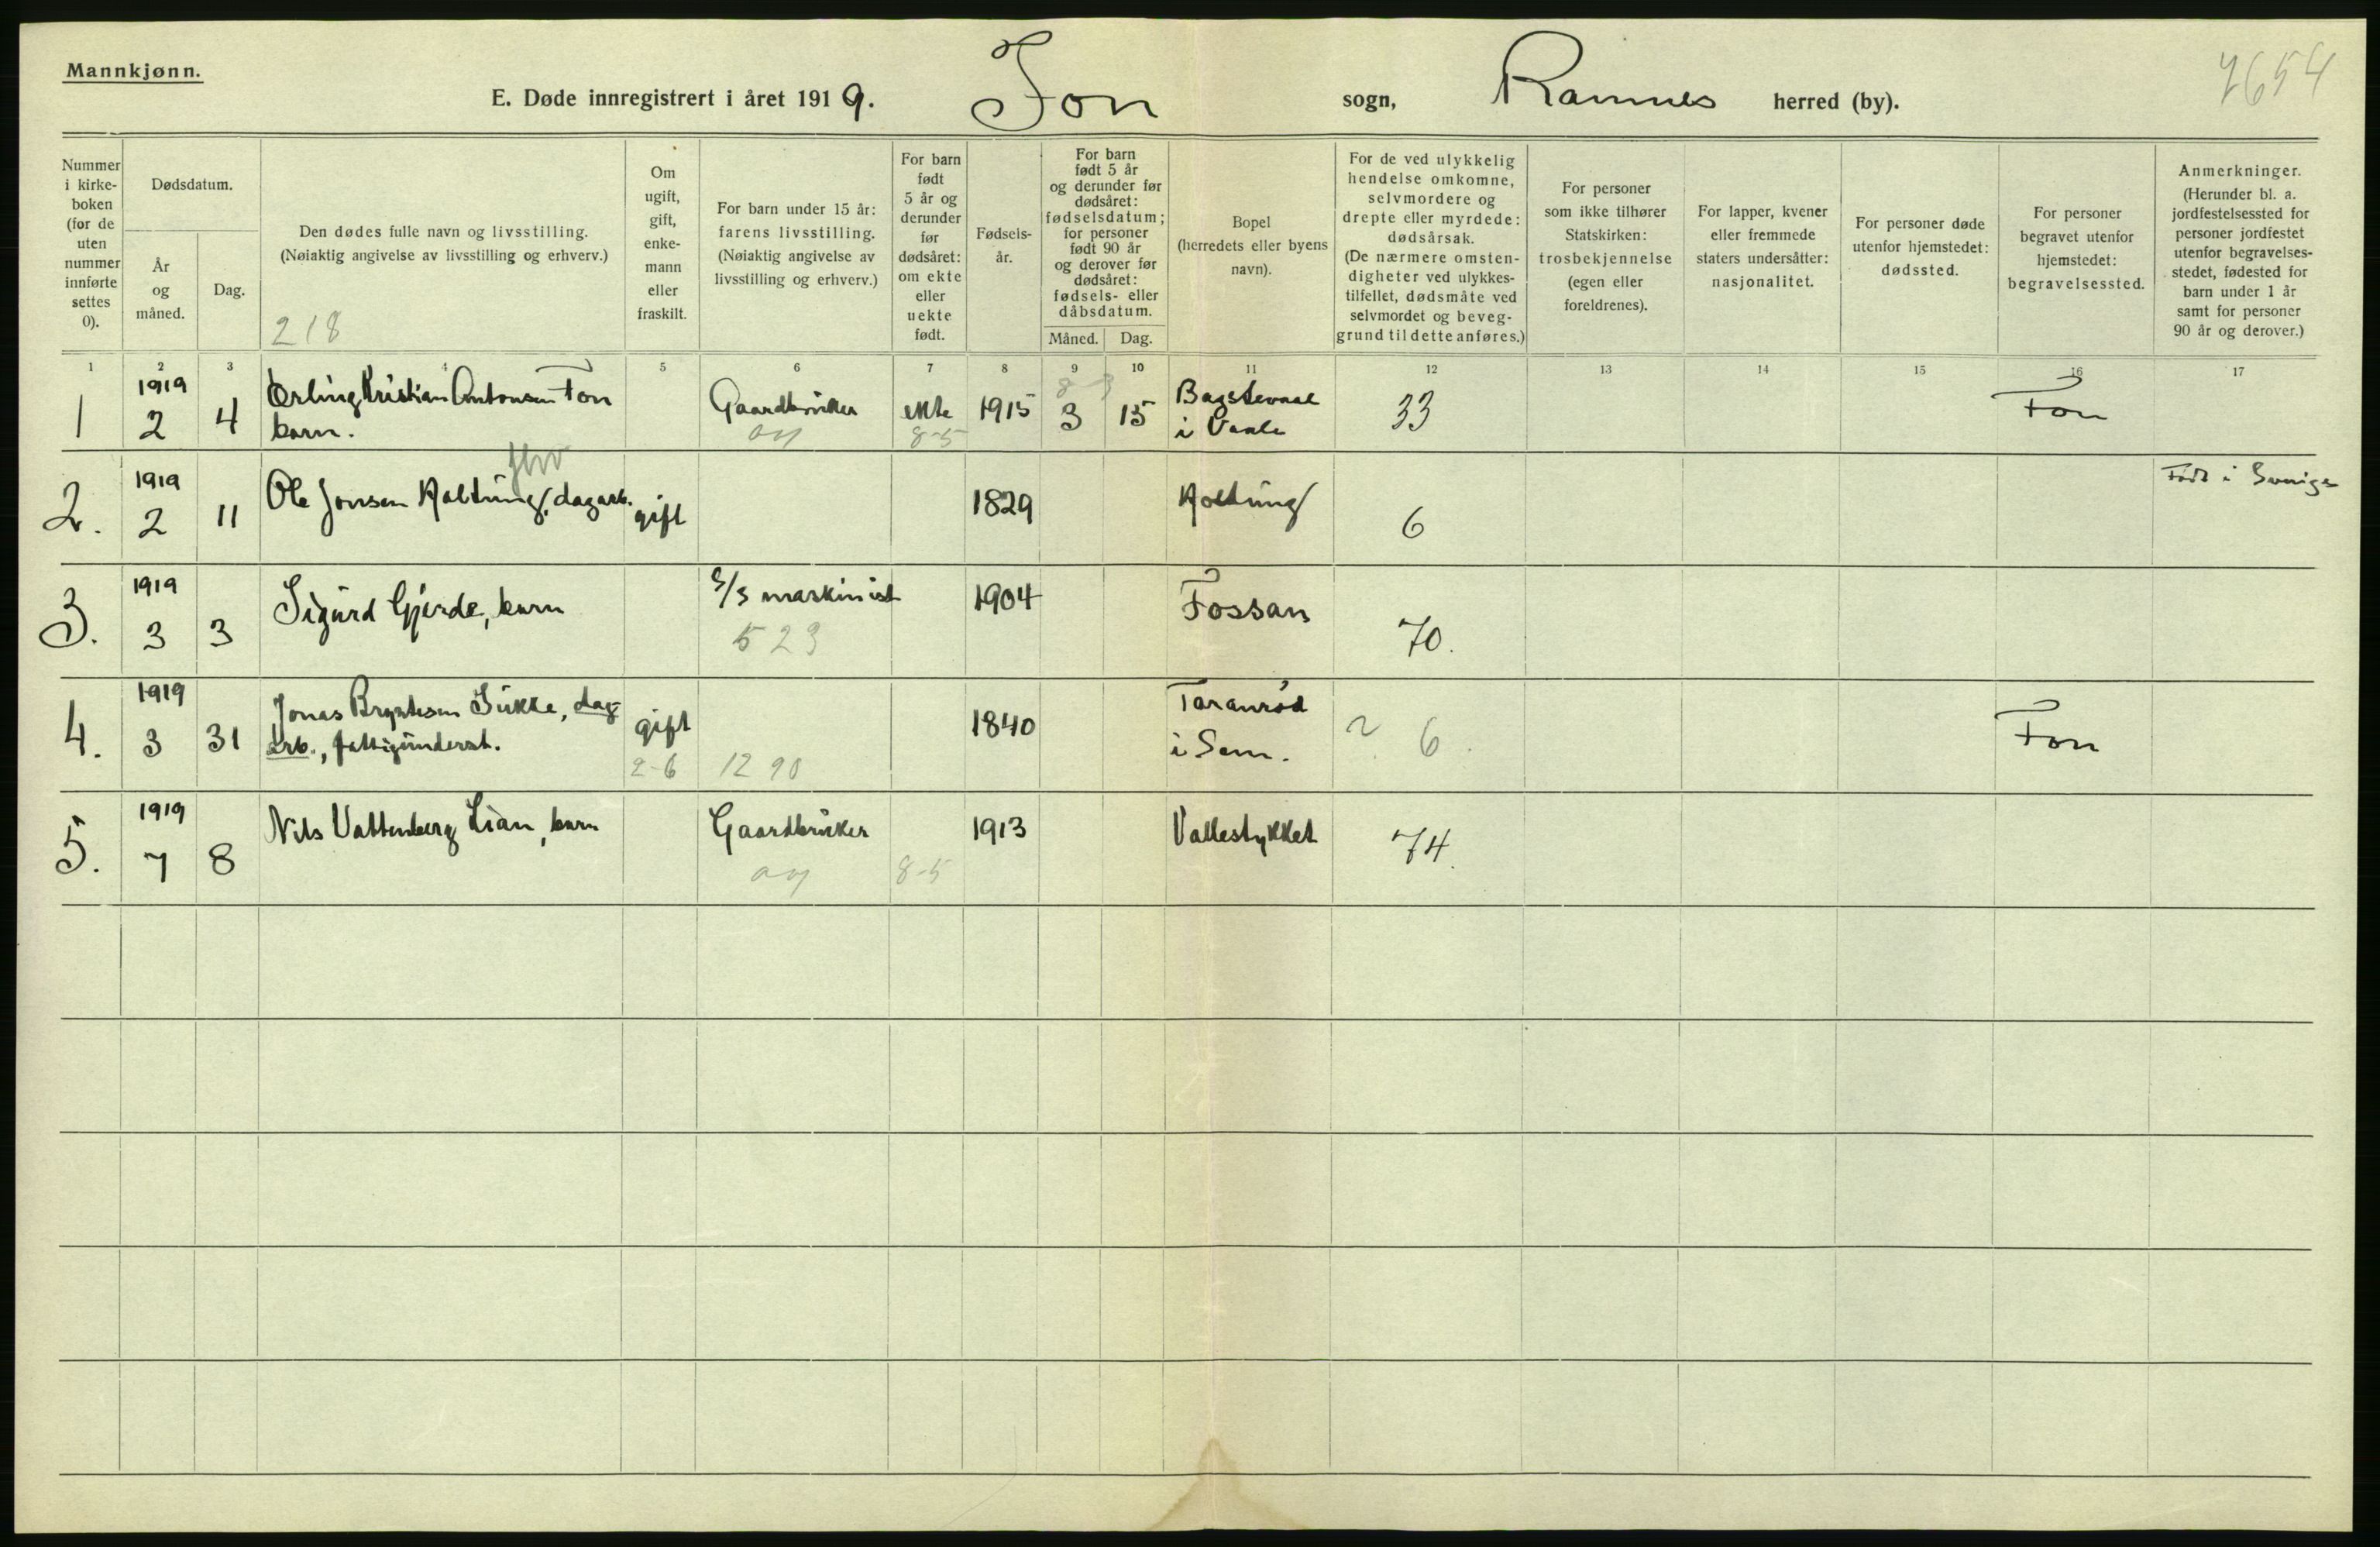 Mannkjønn.
E. Døde innregistrert i året 1919. Fon sogn, Ramnes herred (by).
7654
Nummer i kirke- boken (for de uten nummer innførte settes 0).
Dødsdatum.
År og måned.
Dag.
Den dødes fulle navn og livsstilling.
(Nøiaktig angivelse av livsstilling og erhverv.)
218
Om ugift, gift, enke- mann eller fraskilt.
For barn under 15 år: farens livsstilling. (Nøiaktig angivelse av livsstilling og erhverv.)
For barn født 5 år og derunder før dødsåret: om ekte eller uekte født.
Fødsels- år.
For barn født 5 år og derunder før dødsåret: fødselsdatum; for personer født 90 år og derover før dødsåret: fødsels- eller dåbsdatum.
Måned. Dag.
Bopel (herredets eller byens navn).
For de ved ulykkelig hendelse omkomne, selvmordere og drepte eller myrdede: dødsårsak. (De nærmere omsten- digheter ved ulykkes- tilfellet, dødsmåte ved selvmordet og beveg- grund til dette anføres.)
For personer som ikke tilhører Statskirken: trosbekjennelse (egen eller foreldrenes).
For lapper, kvener eller fremmede staters undersåtter: nasjonalitet.
For personer døde utenfor hjemstedet: dødssted.
For personer begravet utenfor hjemstedet: begravelsessted.
Anmerkninger. (Herunder bl. a. jordfestelsessted for personer jordfestet utenfor begravelses- stedet, fødested for barn under 1 år samt for personer 90 år og derover.)
1 2 3 4 5 6 7 8 9 10 11 12 13 14 15 16 17
1 1919 2 4 Erling Kristian Antonsen Fon barn. Gaardbruker ekte 8-5 1915 3 15 Bagstevaal i Vaale 33 Fon
2. 1919 2 11 Ole Jonsen Holtung, dagarb. gift 1829 Holtung 6 Født i Sverige
3. 1919 3 3 Sigurd Gjerde, barn S/S maskinist 523 1904 Fossan 70.
4. 1919 3 31 Jonas Bryntesen Sukke, dag- arb., fattigunderst. gift 2-6 1290 1840 Taranrød i Sem. 6. Fon
5. 1919 7 8 Nils Vattenberg Lian, barn Gaardbruker 8-5 1913 Vallestykket 74.